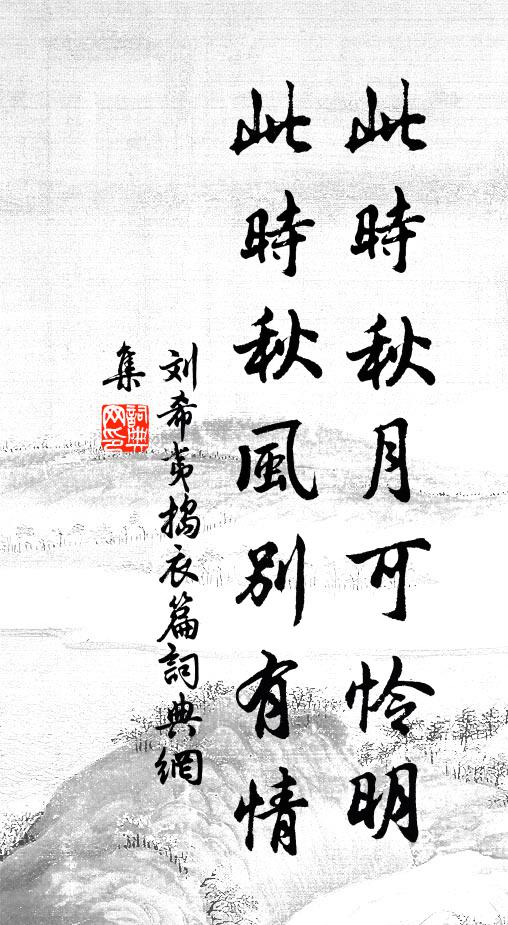 此時秋月可怜明
此時秋風別有情
刘希夷搗衣篇詞典網
集
詞典
网印